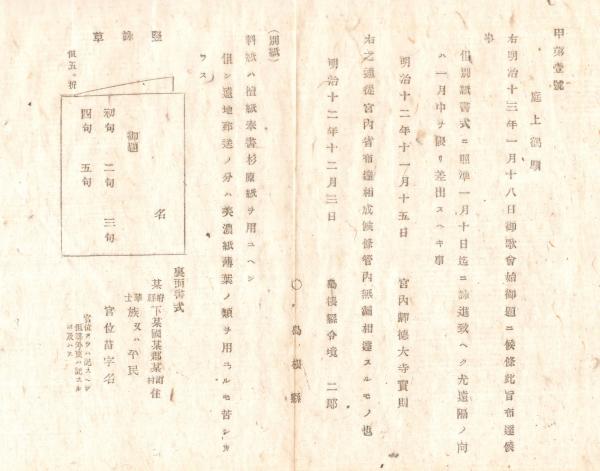 甲第壹號
庭上鶴馴
右明治十三年一月十八日御歌會始御題ニ候條此旨布達候
事
但別紙書式ニ照準一月十日迄ニ詠進致ヘク尤遠隔ノ向
ハ一月中ヲ限リ差出スヘキ事
明治十二年十一月十五日
宮內卿德大寺實則
右之通從宮內省布達相成候條管內無漏相達スルモノ也
明治十二年十二月三日
島根縣令境二郎
○島根縣
(別紙)
料紙ハ檀紙奉書杉原紙ヲ用ユヘシ
但シ遠地郵送ノ分ハ美濃紙薄葉ノ類ヲ用ユルモ苦シカ
ラス
竪詠草
但五ッ折
名
御題
初句 二句 三句
四句 五句
裏面書式
某府縣下某國某郡某町村住
華士族又ハ平民
官位苗字名
官位アラハ記スヘシ